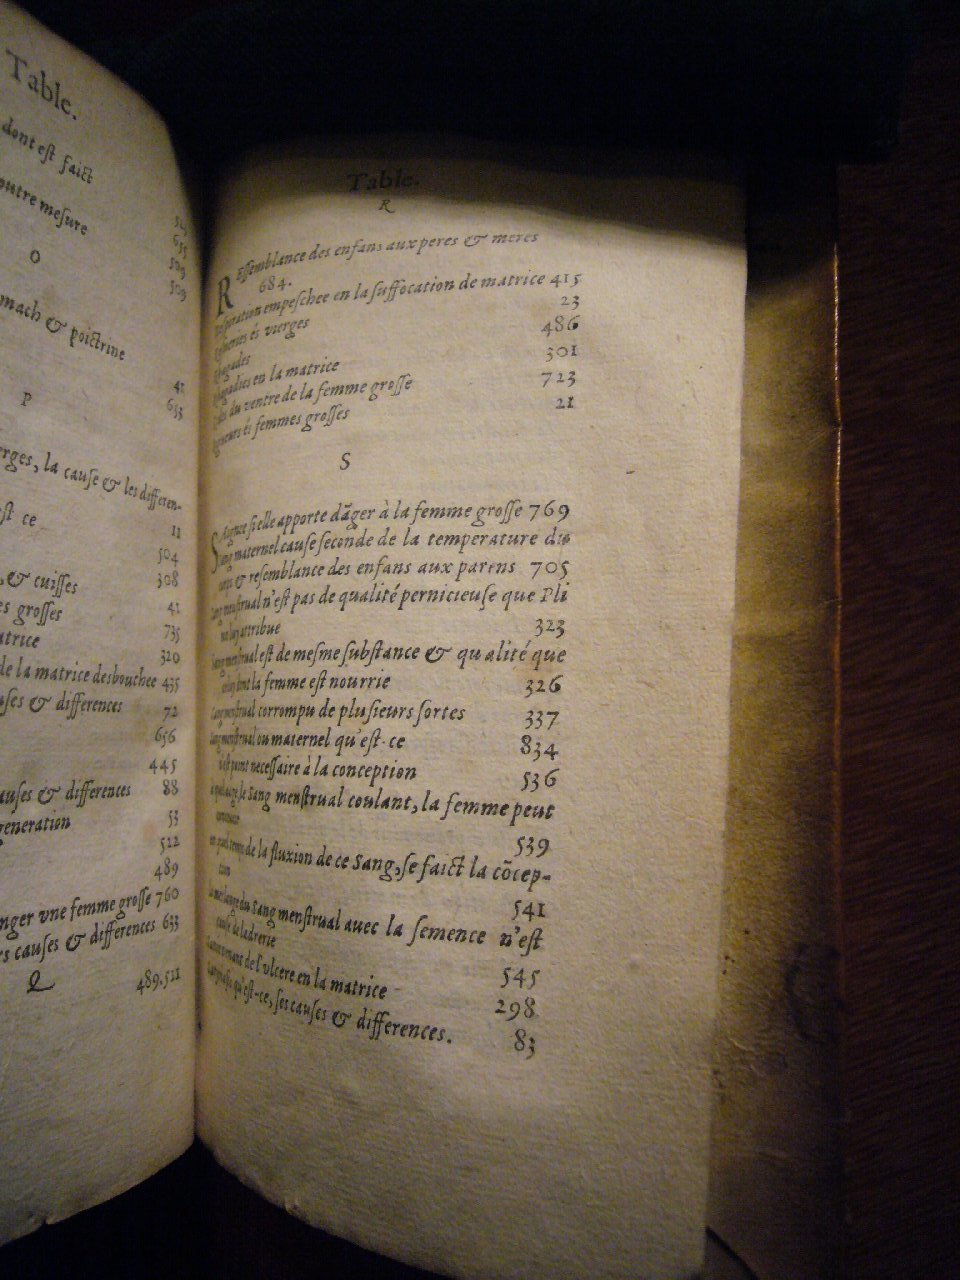 Table.
dont est faict
outre mesure
565
655
O
509
509
mach & poictrine
41
P
653
erges, la cause & les differen-
11
est ce
504
& cuisses 308
es grosses 41
atrice 735
320
de la matrice desbouchee 435
uses & differences 72
656
445
auses & differences 88
generation 53
522
489
anger vne femme grosse 760
rs causes & differences 633
Q
489.511
Table.
R
REssemblance des enfans aux peres & meres
684.
Respiration empeschee en la suffocation de matrice 415
és vierges 23
486
en la matrice 301
du ventre de la femme grosse 723
és femmes grosses 21
S
SAignee si elle apporte dãger à la femme grosse 769
Sang maternel cause seconde de la temperature du
& resemblance des enfans aux parens 705
Sang menstrual n'est pas de qualité pernicieuse que Pli
ne luy attribue 323
Sang menstrual est de mesme substance & qualité que
celuy dont la femme est nourrie 326
Sang menstrual corrompu de plusieurs sortes 337
Sang menstrual ou maternel qu'est-ce 834
n'est point necessaire à la conception 536
le Sang menstrual coulant, la femme peut
539
en quel temps de la fluxion de ce Sang, se faict la cõcep-
tion 541
le meslange du Sang menstrual auec la semence n'est
cause de ladrerie 545
de l'vlcere en la matrice 298
qu'est-ce, ses causes & differences. 83